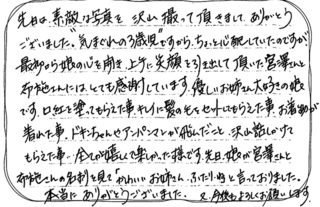 先日は、素敵な写真を沢山撮って頂きまして、ありがとう
ございました。"気まぐれの3歳児"ですから、ちょっと心配していたのですが
最初から娘の心を開き、上手に笑顔を引き出して頂いた宮澤さんと
布施さんには、とても感謝しています。優しいお姉さん大好きの娘
です。口紅を塗ってもらえた事、キレイに髪の毛をセットしてもらえた事、お着物が
着れた事、ドキンちゃんやアンパンマンが飛んだこと、沢山話しかけて
もらえた事、全てが嬉しくて楽しかった様です。先日、娘が宮澤さんと
布施さんの名刺を見て"かわいいお姉さん、ふたりいる"と言っておりました。
本当にありがとうございました。又、今後もよろしくお願いします。